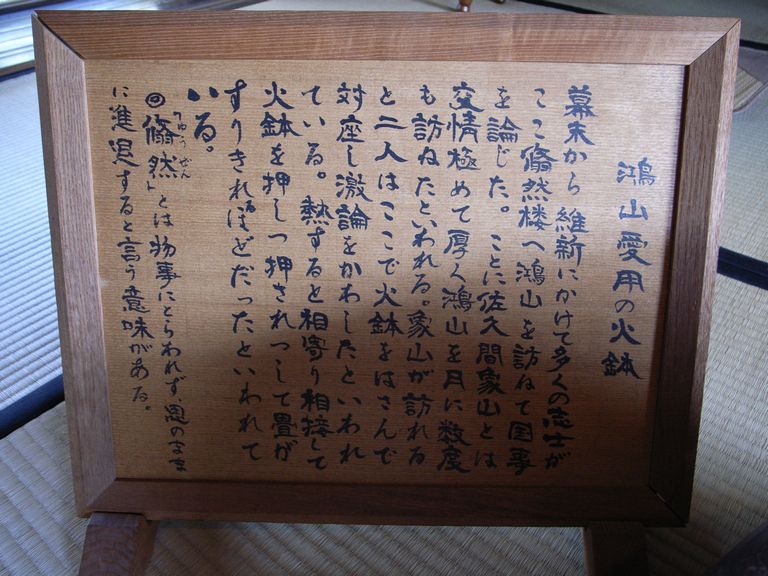 鴻山愛用の火鉢
幕末から維新にかけて多くの志士が
ここ翛然楼へ鴻山を訪ねて国事
を論じた。ことに佐久間象山とは
交情極めて厚く鴻山を月に数度
も訪ねたといわれる。象山が訪れる
と二人はここで火鉢をはさんで
対座し激論をかわしたといわれ
ている。熱すると相寄り相接して
火鉢を押しつ押されつして畳が
すりきれるほどだったといわれて
いる。
◎「翛然」とは物事にとらわれず、思のまま
ゆうぜん
に進退すると言う意味がある。